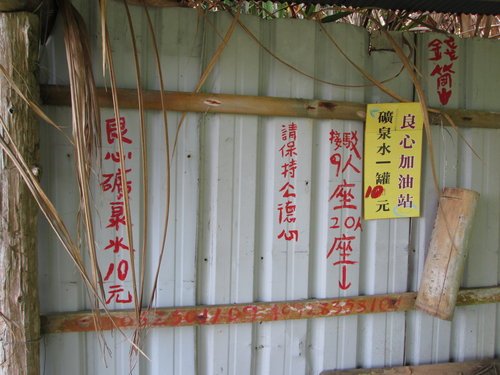 錢筒↓
良心加油站
礦泉水一罐10元
接駁
9人座20人座↓
請保持公德心
良心礦泉水10元